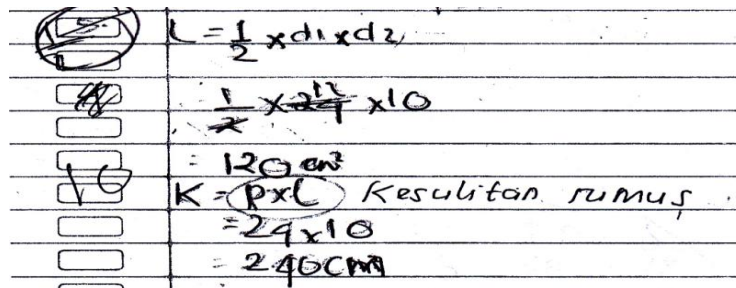 L = 1/2 x d1 x d2
1/2 x 24 12 x 10
= 120 cm²
K = p x l Kesulitan rumus
= 24 x 10
= 240 cm
10